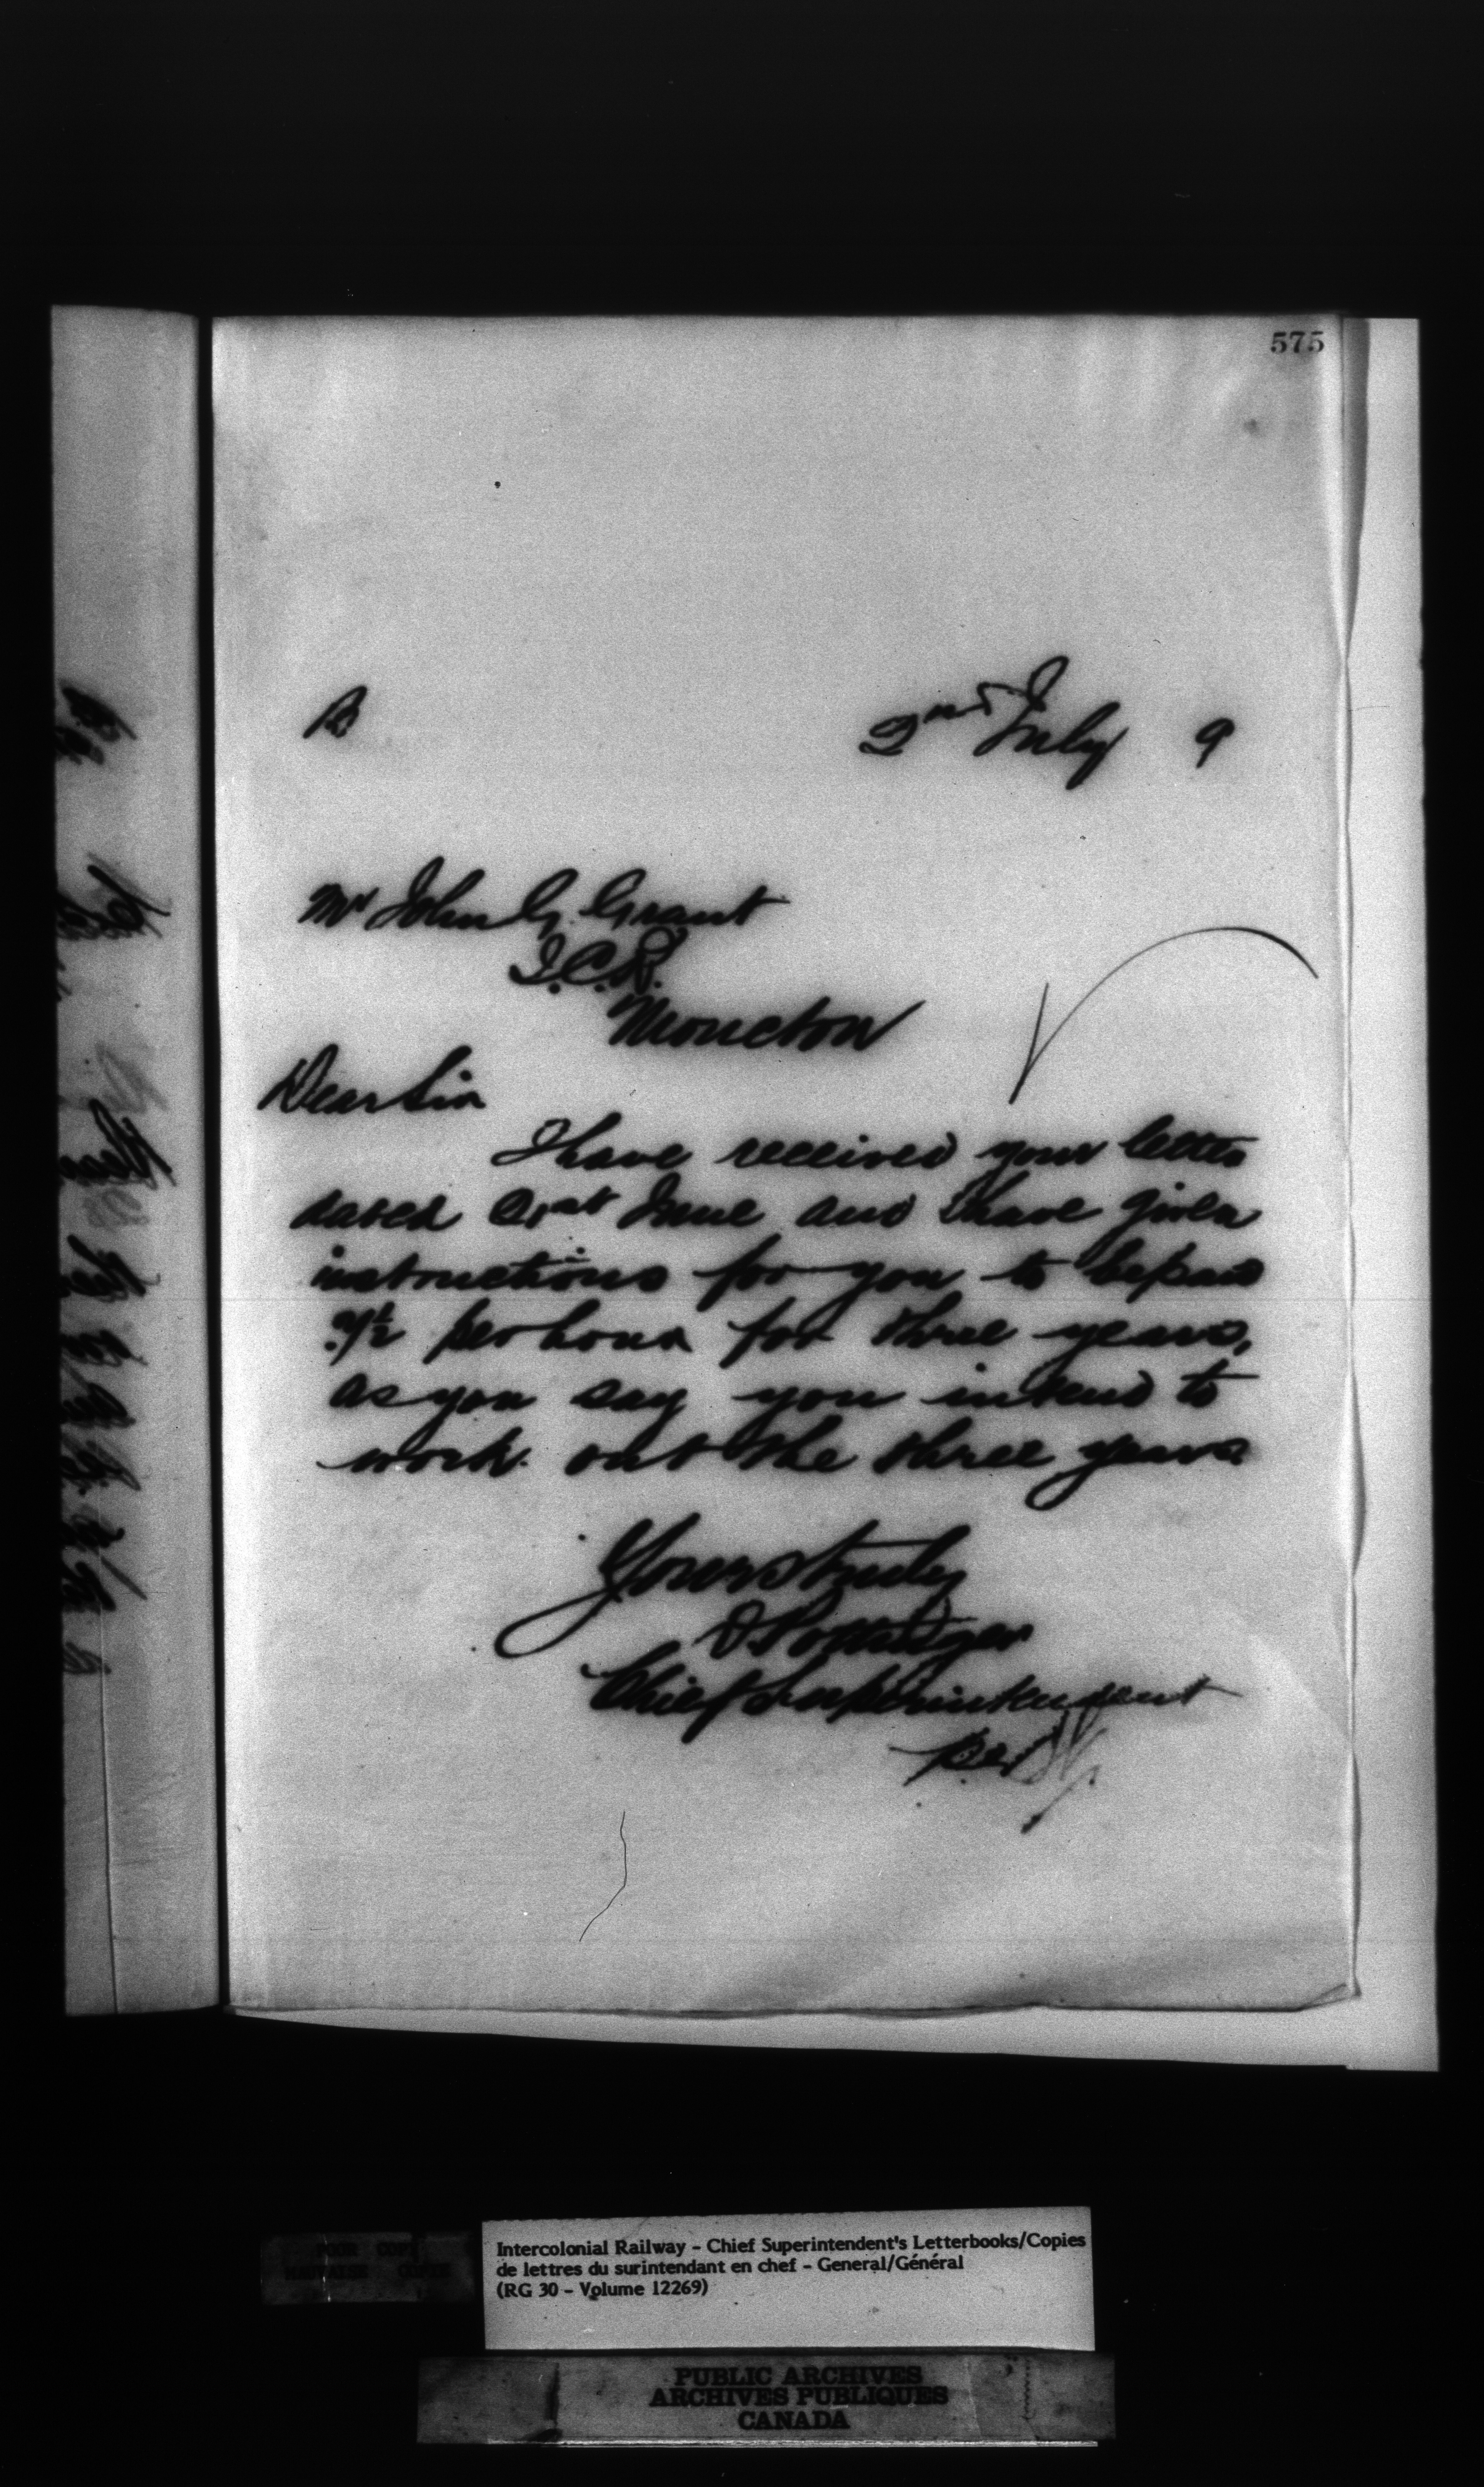 575
B
2nd July 9
Mr John G. Grant
I.C.R.
Moncton
Dear Sir
I have received your letter
dated 21st June and I have given
instructions for you to be paid
per hour for three years,
as you say you intend to
work out the three years.
Yours truly
D Pottinger
Chief Superintendent
POOR COPY
MAUVAISE COPIE
Intercolonial Railway - Chief Superintendent's Letterbooks/Copies
de lettres du surintendant en chef - General/Général
(RG 30 - Volume 12269)
PUBLIC ARCHIVES
ARCHIVES PUBLIQUES
CANADA